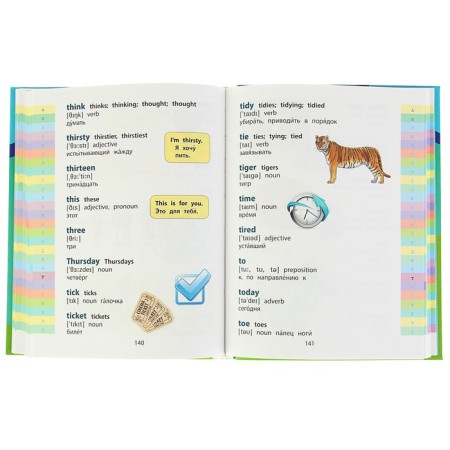 think thinks; thinking; thought; thought
[θɪŋk] verb
ду́мать
thirsty thirstier, thirstiest
['θɜ:stɪ] adjective
испытывающий жа́жду
I'm thirsty.
Я хочу́
пить.
thirteen
[ˌθɜ:'ti:n]
трина́дцать
this these
[ðɪs] adjective, pronoun
э́тот
This is for you.
Это для тебя́.
three
[θri:]
три
Thursday Thursdays
['θɜ:zdeɪ] noun
четве́рг
tick ticks
[tɪk] noun га́лочка
ticket tickets
['tɪkɪt] noun
биле́т
140
tidy tidies; tidying; tidied
['taɪdɪ] verb
убира́ть, приводи́ть в поря́док
tie ties; tying; tied
[taɪ] verb
завя́зывать
tiger tigers
['taɪgə] noun
тигр
time
[taɪm] noun
вре́мя
tired
['taɪəd] adjective
уста́вший
to
[tu:, tu, tə] preposition
к, по направле́нию к
today
[tə'deɪ] adverb
сего́дня
toe toes
[təʊ] noun па́лец ноги́
141